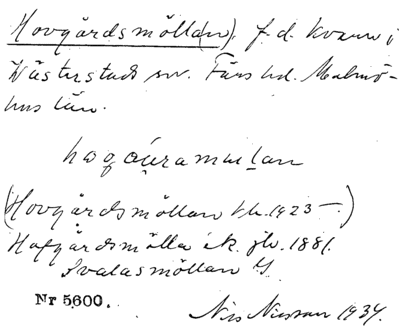 Hovgårdsmölla(n), f.d. kvarn i
Västerstads sn. Färs hd. Malmö-
hus län.
(Hovgårdsmöllan tk. 1923 –.)
Hofgårdsmölla ek. jb. 1881.
Svalasmöllan
Nr 5600.
Nils Nilsson 1934.